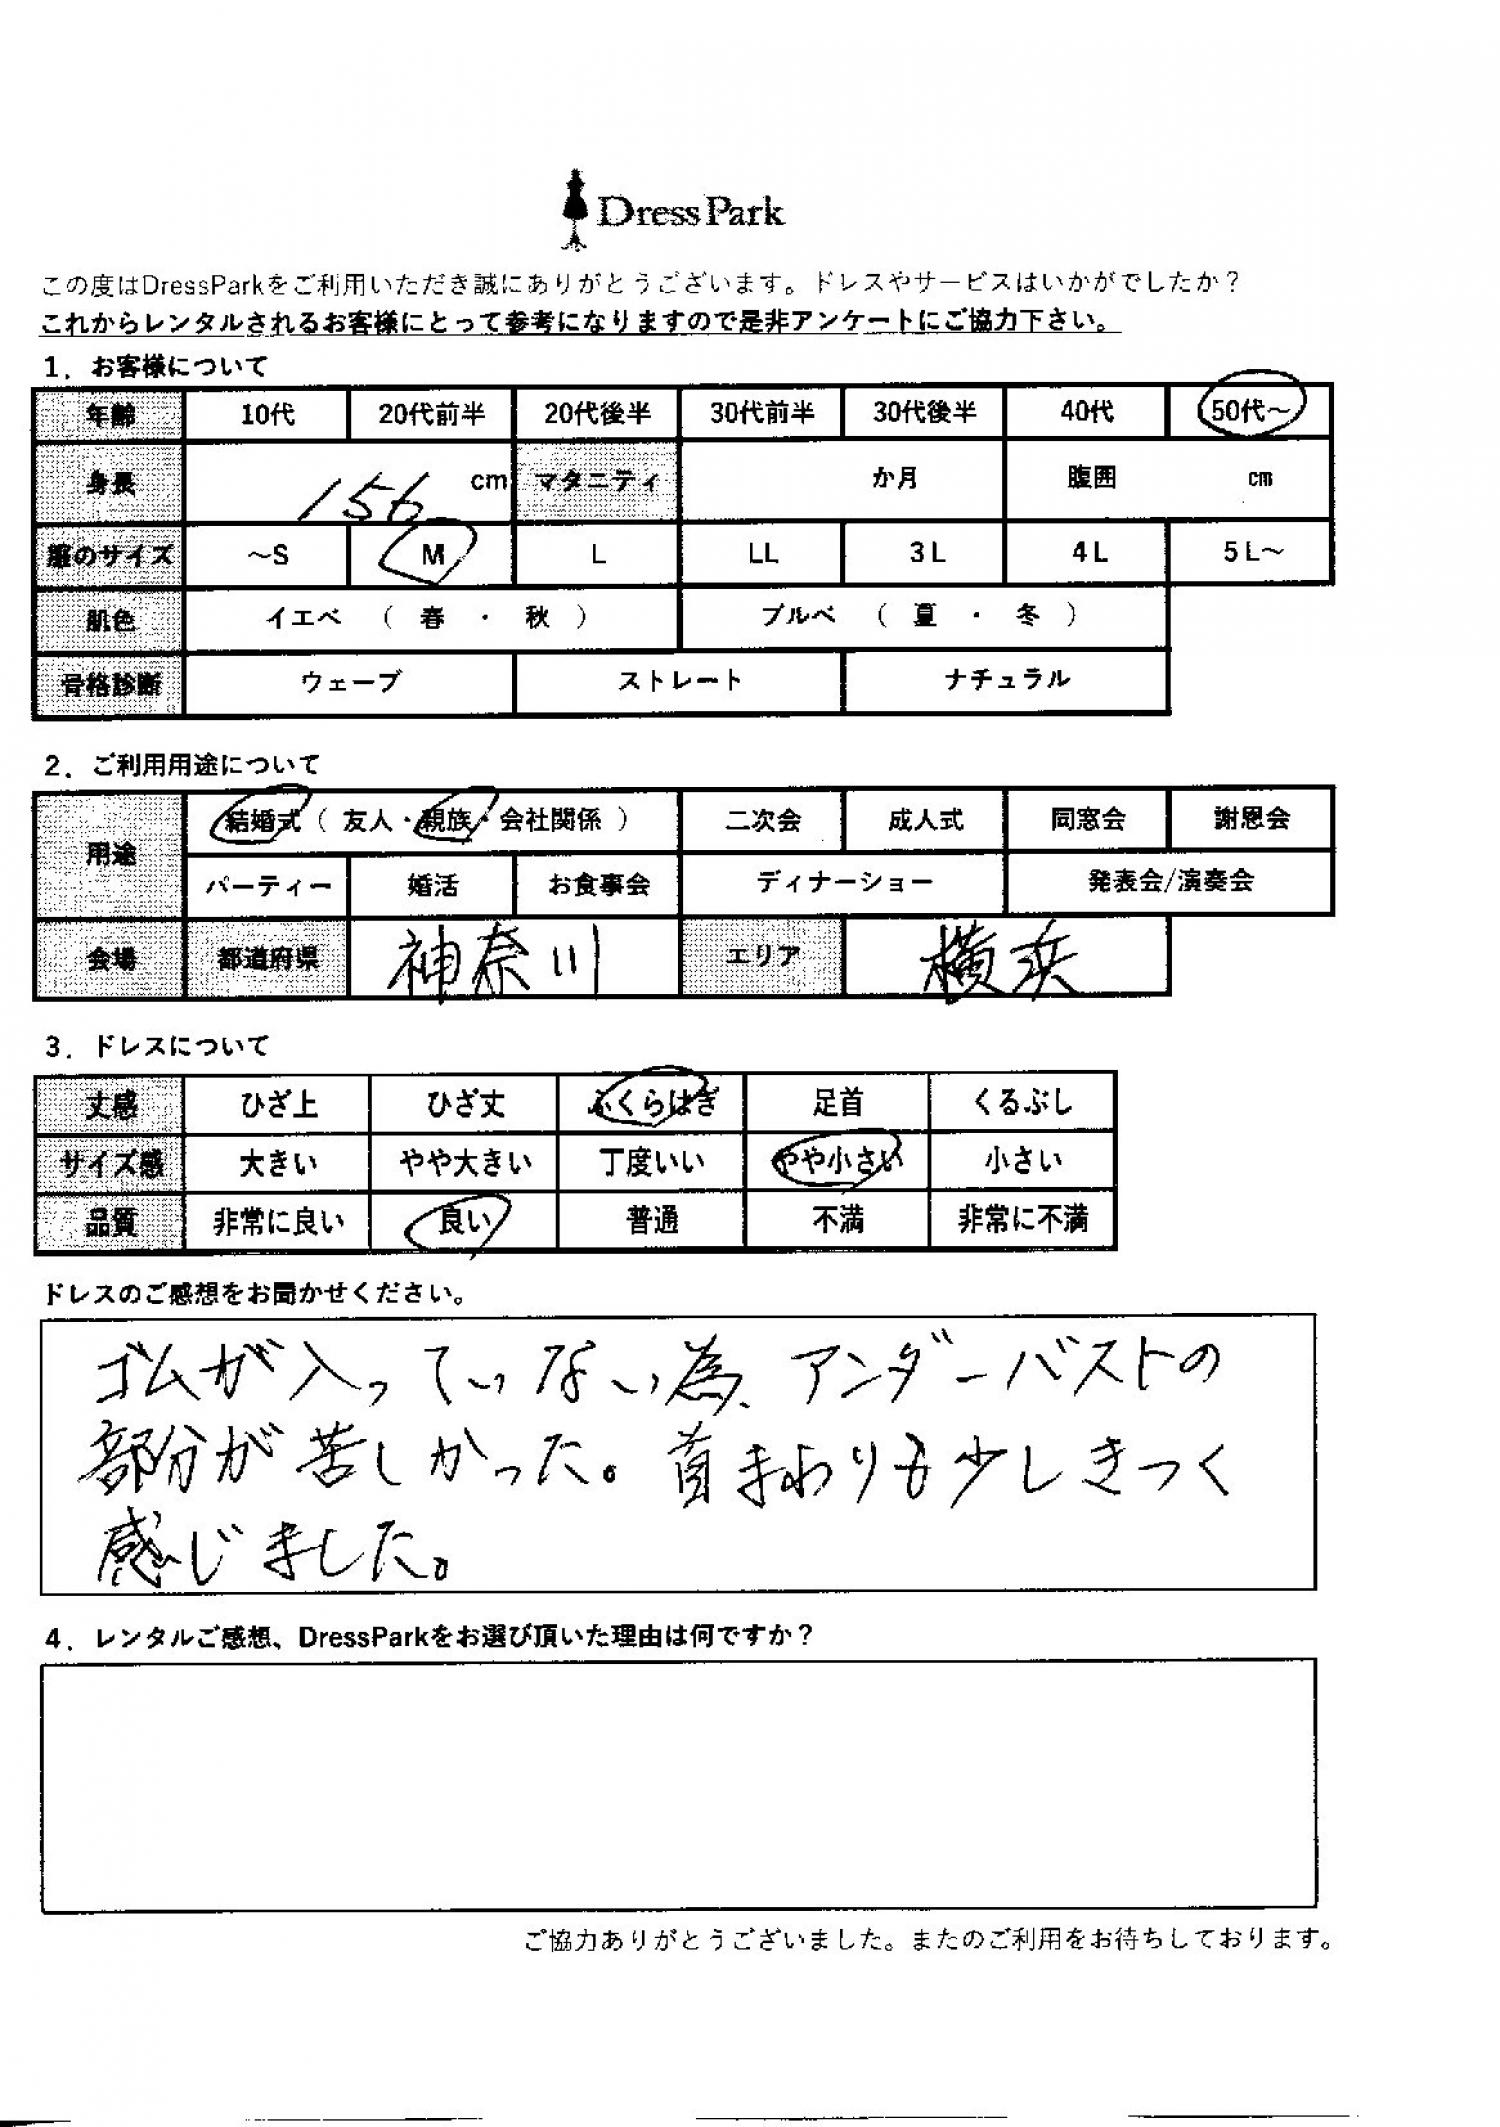 DressPark
この度はDressParkをご利用いただき誠にありがとうございます。ドレスやサービスはいかがでしたか？
これからレンタルされるお客様にとって参考になりますので是非アンケートにご協力下さい。
1．お客様について
年齢 10代 20代前半 20代後半 30代前半 30代後半 40代 50代～
身長 156 cm マタニティ か月 腹囲 cm
服のサイズ ～S M L LL 3L 4L 5L～
肌色 イエベ （ 春 ・ 秋 ） ブルベ （ 夏 ・ 冬 ）
骨格診断 ウェーブ ストレート ナチュラル
2．ご利用用途について
用途 結婚式（ 友人・親族・会社関係 ） 二次会 成人式 同窓会 謝恩会
パーティー 婚活 お食事会 ディナーショー 発表会/演奏会
会場 都道府県 神奈川 エリア 横浜
3．ドレスについて
丈感 ひざ上 ひざ丈 ふくらはぎ 足首 くるぶし
サイズ感 大きい やや大きい 丁度いい やや小さい 小さい
品質 非常に良い 良い 普通 不満 非常に不満
ドレスのご感想をお聞かせください。
ゴムが入っていない為、アンダーバストの
部分が苦しかった。首まわりも少しきつく
感じました。
4．レンタルご感想、DressParkをお選び頂いた理由は何ですか？
ご協力ありがとうございました。またのご利用をお待ちしております。